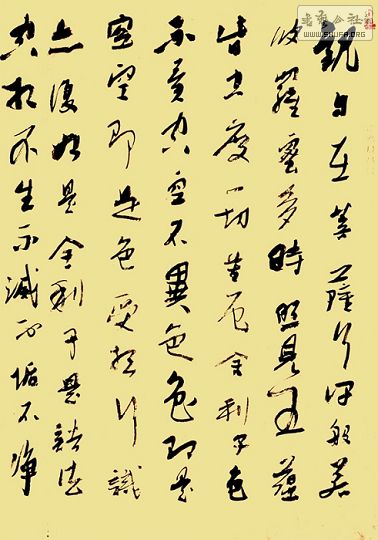 觀自在菩薩行深般若
波羅蜜多時照見五蘊
皆空度一切苦厄舍利子色
不異空空不異色色即是
空空即是色受想行識
亦復如是舍利子是諸法
空相不生不滅不垢不淨
WWW.SHUFA.ORG